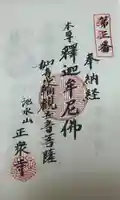 第三番
奉納経
本尊
釋迦牟尼佛
如意輪観世音菩薩
池水山
正衆寺